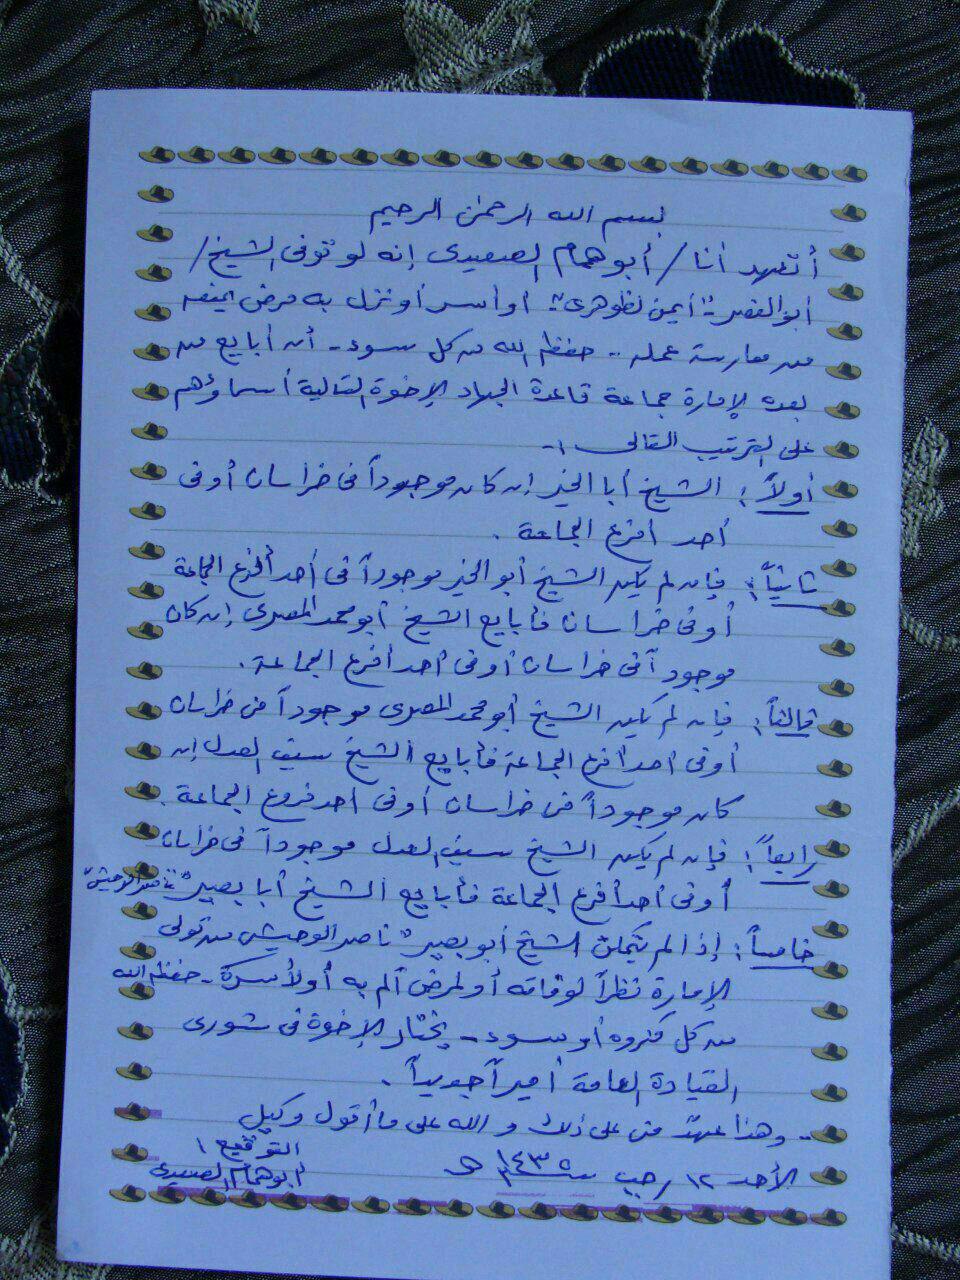 بسم الله الرحمن الرحيم
أتعهد أنا / أبو همام الصعيدى إنه لو توفى الشيخ /
أبو الفضر "أيمن الظوهرى" أو أسر أو نزل به مرض يمنعه
من ممارسة عمله - حفظه الله من كل سوء - أن أبايع من
بعده لإمارة جماعة قاعدة الجهاد الإخوة التالية أسماؤهم
على الترتيب التالى :-
أولاً: الشيخ أبا الخير إن كان موجوداً فى خراسان أو فى
أحد أفرع الجماعة .
ثانياً: فإن لم يكن الشيخ أبو الخير موجوداً فى أحد أفرع الجماعة
أو فى خراسان فأبايع الشيخ أبو محمد المصرى إن كان
موجوداً فى خراسان أو فى أحد أفرع الجماعة .
ثالثاً: فإن لم يكن الشيخ أبو محمد المصرى موجوداً فى خراسان
أو فى أحد أفرع الجماعة فأبايع الشيخ سيف العدل إن
كان موجوداً فى خراسان أو فى أحد فروع الجماعة .
رابعاً: فإن لم يكن الشيخ سيف العدل موجوداً فى خراسان
أو فى أحد أفرع الجماعة فأبايع الشيخ أبا بصير "ناصر الوحيشى"
خامساً: إذا لم يتمكن الشيخ أبو بصير "ناصر الوحيشى من تولى
الإمارة نظراً لوفاته أو لمرض ألم به أو لأسره - حفظه الله
من كل مكروه أو سوء - يختار الإخوة فى شورى
القيادة العامة أميراً جديداً .
- وهذا عهدٌ منى على ذلك و الله على ما أقول وكيل
التوقيع /
الأحد ١٢ رجب سنة ١٤٣٥ هـ
أبو همام الصعيدى